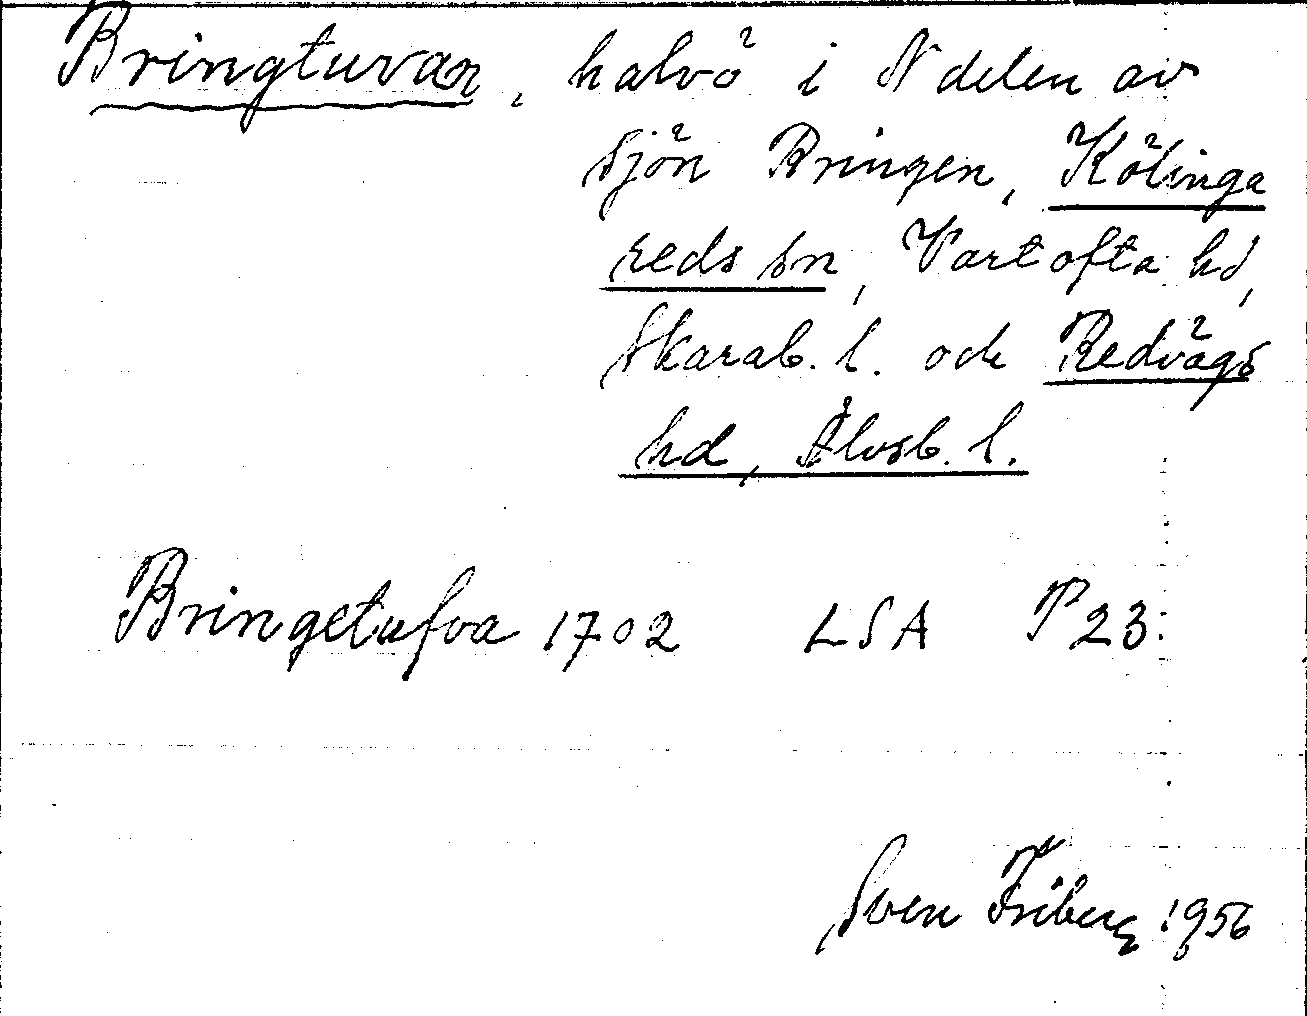 Bringtuvan, halvö i N delen av
sjön Bringen, Kölinga
reds sn, Vartofta hd,
Skarab. l. och Redvägs
hd, Älvsb. l.
Bringetufva 1702 LSA P 23:
Sven Friberg 1956